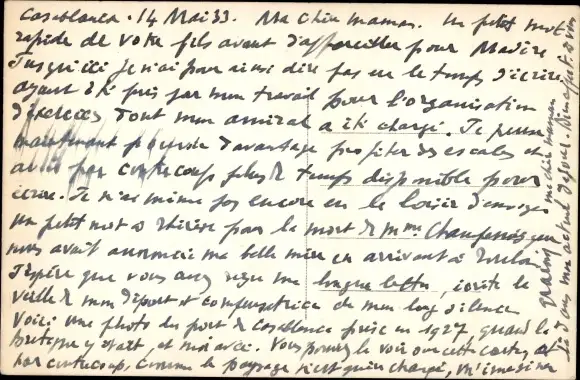 Casablanca. 14 Mai 33. Ma chère maman. Un petit mot
rapide de votre fils avant d'appareiller pour Madère
Jusqu'ici je n'ai pour ainsi dire pas eu le temps d'écrire
ayant été pris par mon travail pour l'organisation
d'exercices dont mon amiral a été chargé. Je pense
maintenant pouvoir davantage profiter des escales et
avoir par contrecoup plus de temps disponible pour
écrire. Je n'ai même pas encore eu le loisir d'envoyer
un petit mot à Thérèse pour la mort de Mme que
nous avait annoncée ma belle mère en arrivant à Toulon
J'espère que vous avez reçu ma longue lettre, écrite la
veille de mon départ et compensatrice de mon long silence
Voici une photo du port de Casablanca prise en 1927 quand le
Bretagne y était, et moi avec. Vous pourrez le voir sur cette carte, et
par contrecoup, comme le paysage n'est guère changé, m'imaginer
ma chère maman